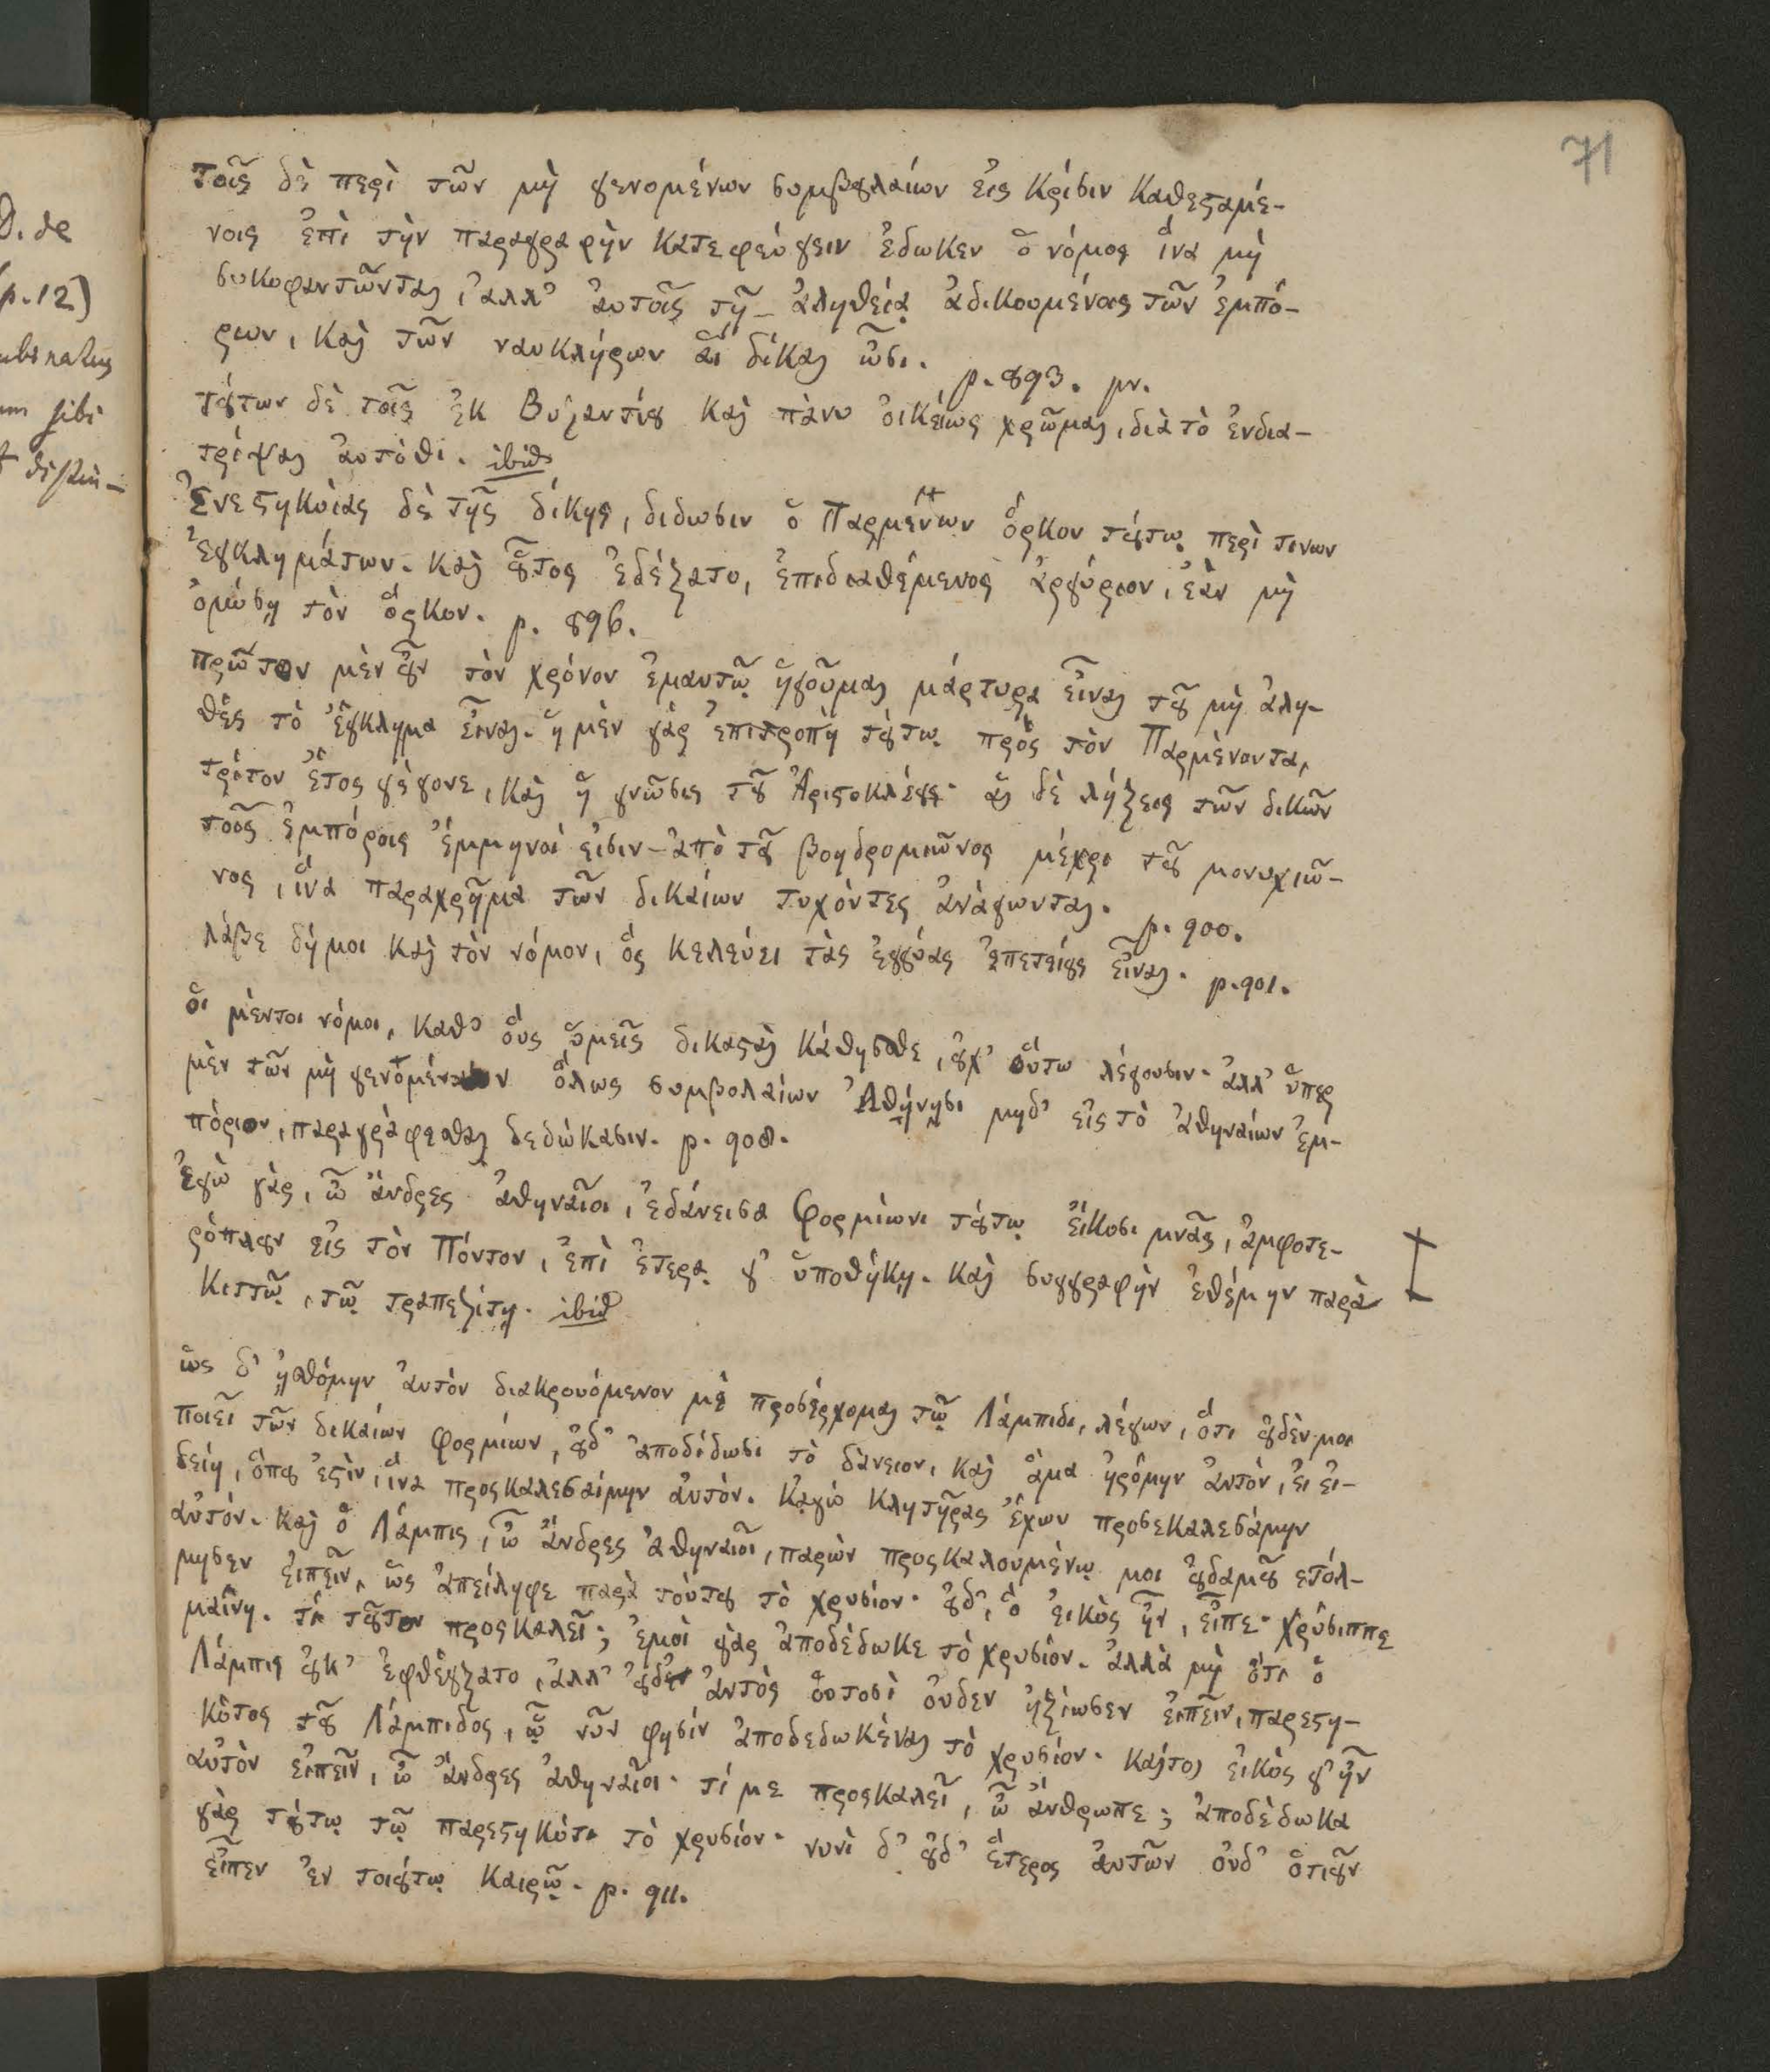 71
D. de
p. 12)
sibi
τοῖς δὲ περὶ τῶν μὴ γενομένων συμβολαίων εἰς κρίσιν καθεσταμέ-
νοις ἐπὶ τὴν παραγραφὴν καταφεύγειν ἔδωκεν ὁ νόμος ἵνα μὴ
συκοφαντῶνται, ἀλλ' αὐτοῖς τῇ ἀληθείᾳ ἀδικουμένοις τῶν ἐμπό-
ρων, καὶ τῶν ναυκλήρων αἱ δίκαι ὦσι. p. 893. pr.
τούτων δὲ τοῖς ἐκ Βυζαντίου καὶ πάνυ οἰκείως χρῶμαι, διὰ τὸ ἐνδια-
τρίψαι αὐτόθι. ibid
Ἐνεστηκυίας δὲ τῆς δίκης, δίδωσιν ὁ Παρμένων ὅρκον τούτῳ περί τινων
ἐγκλημάτων. καὶ οὗτος ἐδέξατο, ἐπιδιαθέμενος ἀργύριον, ἐὰν μὴ
ὀμόσῃ τὸν ὅρκον. p. 896.
πρῶτον μὲν οὖν τὸν χρόνον ἐμαυτῷ ἡγοῦμαι μάρτυρα εἶναι τοῦ μὴ ἀλη-
θὲς τὸ ἔγκλημα εἶναι. ἡ μὲν γὰρ ἐπιτροπὴ τούτῳ πρὸς τὸν Παρμένοντα,
τρίτον ἔτος γέγονε, καὶ ἡ γνῶσις τοῦ Ἀριστοκλέους· αἱ δὲ λήξεις τῶν δικῶν
τοῖς ἐμπόροις ἔμμηνοί εἰσιν - ἀπὸ τοῦ βοηδρομιῶνος μέχρι τοῦ μουνυχιῶ-
νος, ἵνα παραχρῆμα τῶν δικαίων τυχόντες ἀνάγωνται. p. 900.
λάβε δή μοι καὶ τὸν νόμον, ὃς κελεύει τὰς ἐγγύας ἐπετείους εἶναι. p. 901.
οἱ μέντοι νόμοι, καθ' οὓς ὑμεῖς δικασταὶ κάθησθε, οὐχ οὕτω λέγουσιν. ἀλλ' ὑπὲρ
μὲν τῶν μὴ γενομένων ὅλως συμβολαίων Ἀθήνησι μηδ' εἰς τὸ ἀθηναίων ἐμ-
πόριον, παραγράφεσθαι δεδώκασιν. p. 908.
ἐγὼ γὰρ, ὦ ἄνδρες ἀθηναῖοι, ἐδάνεισα Φορμίωνι τούτῳ εἴκοσι μνᾶς, ἀμφοτε-
ρόπλουν εἰς τὸν Πόντον, ἐπὶ ἑτέρᾳ γ' ὑποθήκῃ. καὶ συγγραφὴν ἐθέμην παρὰ
Κιττῷ, τῷ τραπεζίτῃ. ibid
ὡς δ' ᾐσθόμην αὐτὸν διακρουόμενον με προσέρχομαι τῷ Λάμπιδι, λέγων, ὅτι οὐδέν μοι
ποιεῖ τῶν δικαίων Φορμίων, οὐδ' ἀποδίδωσι τὸ δάνειον, καὶ ἅμα ἠρόμην αὐτὸν, εἰ εἰ-
δείη, ὅπου ἐστὶν, ἵνα προσκαλεσαίμην αὐτόν. κἀγὼ κλητῆρας ἔχων προσεκαλεσάμην
αὐτόν. καὶ ὁ Λάμπις, ὦ ἄνδρες ἀθηναῖοι, παρὼν προσκαλουμένῳ μοι οὐδαμοῦ ἐτόλ-
μησεν εἰπεῖν, ὡς ἀπείληφε παρὰ τούτου τὸ χρυσίον· οὐδ', ὃ εἰκὸς ἦν, εἶπε· Χρύσιππε
μαίνῃ. τί τοῦτον προσκαλεῖ; ἐμοὶ γὰρ ἀποδέδωκε τὸ χρυσίον. ἀλλὰ μὴ ὅτι ὁ
Λάμπις οὐκ ἐφθέγξατο, ἀλλ' οὐδ' αὐτὸς οὑτοσὶ οὐδὲν ἠξίωσεν εἰπεῖν, παρεστη-
κότος τοῦ Λάμπιδος, ᾧ νῦν φησίν ἀποδεδωκέναι τὸ χρυσίον. καίτοι εἰκὸς γ' ἦν
αὐτὸν εἰπεῖν, ὦ ἄνδρες ἀθηναῖοι· τί με προσκαλεῖ, ὦ ἄνθρωπε; ἀποδέδωκα
γὰρ τούτῳ τῷ παρεστηκότι τὸ χρυσίον· νυνὶ δ' οὐδ' ἕτερος αὐτῶν οὐδ' ὁτιοῦν
εἶπεν ἐν τοιούτῳ καιρῷ. p. 911.